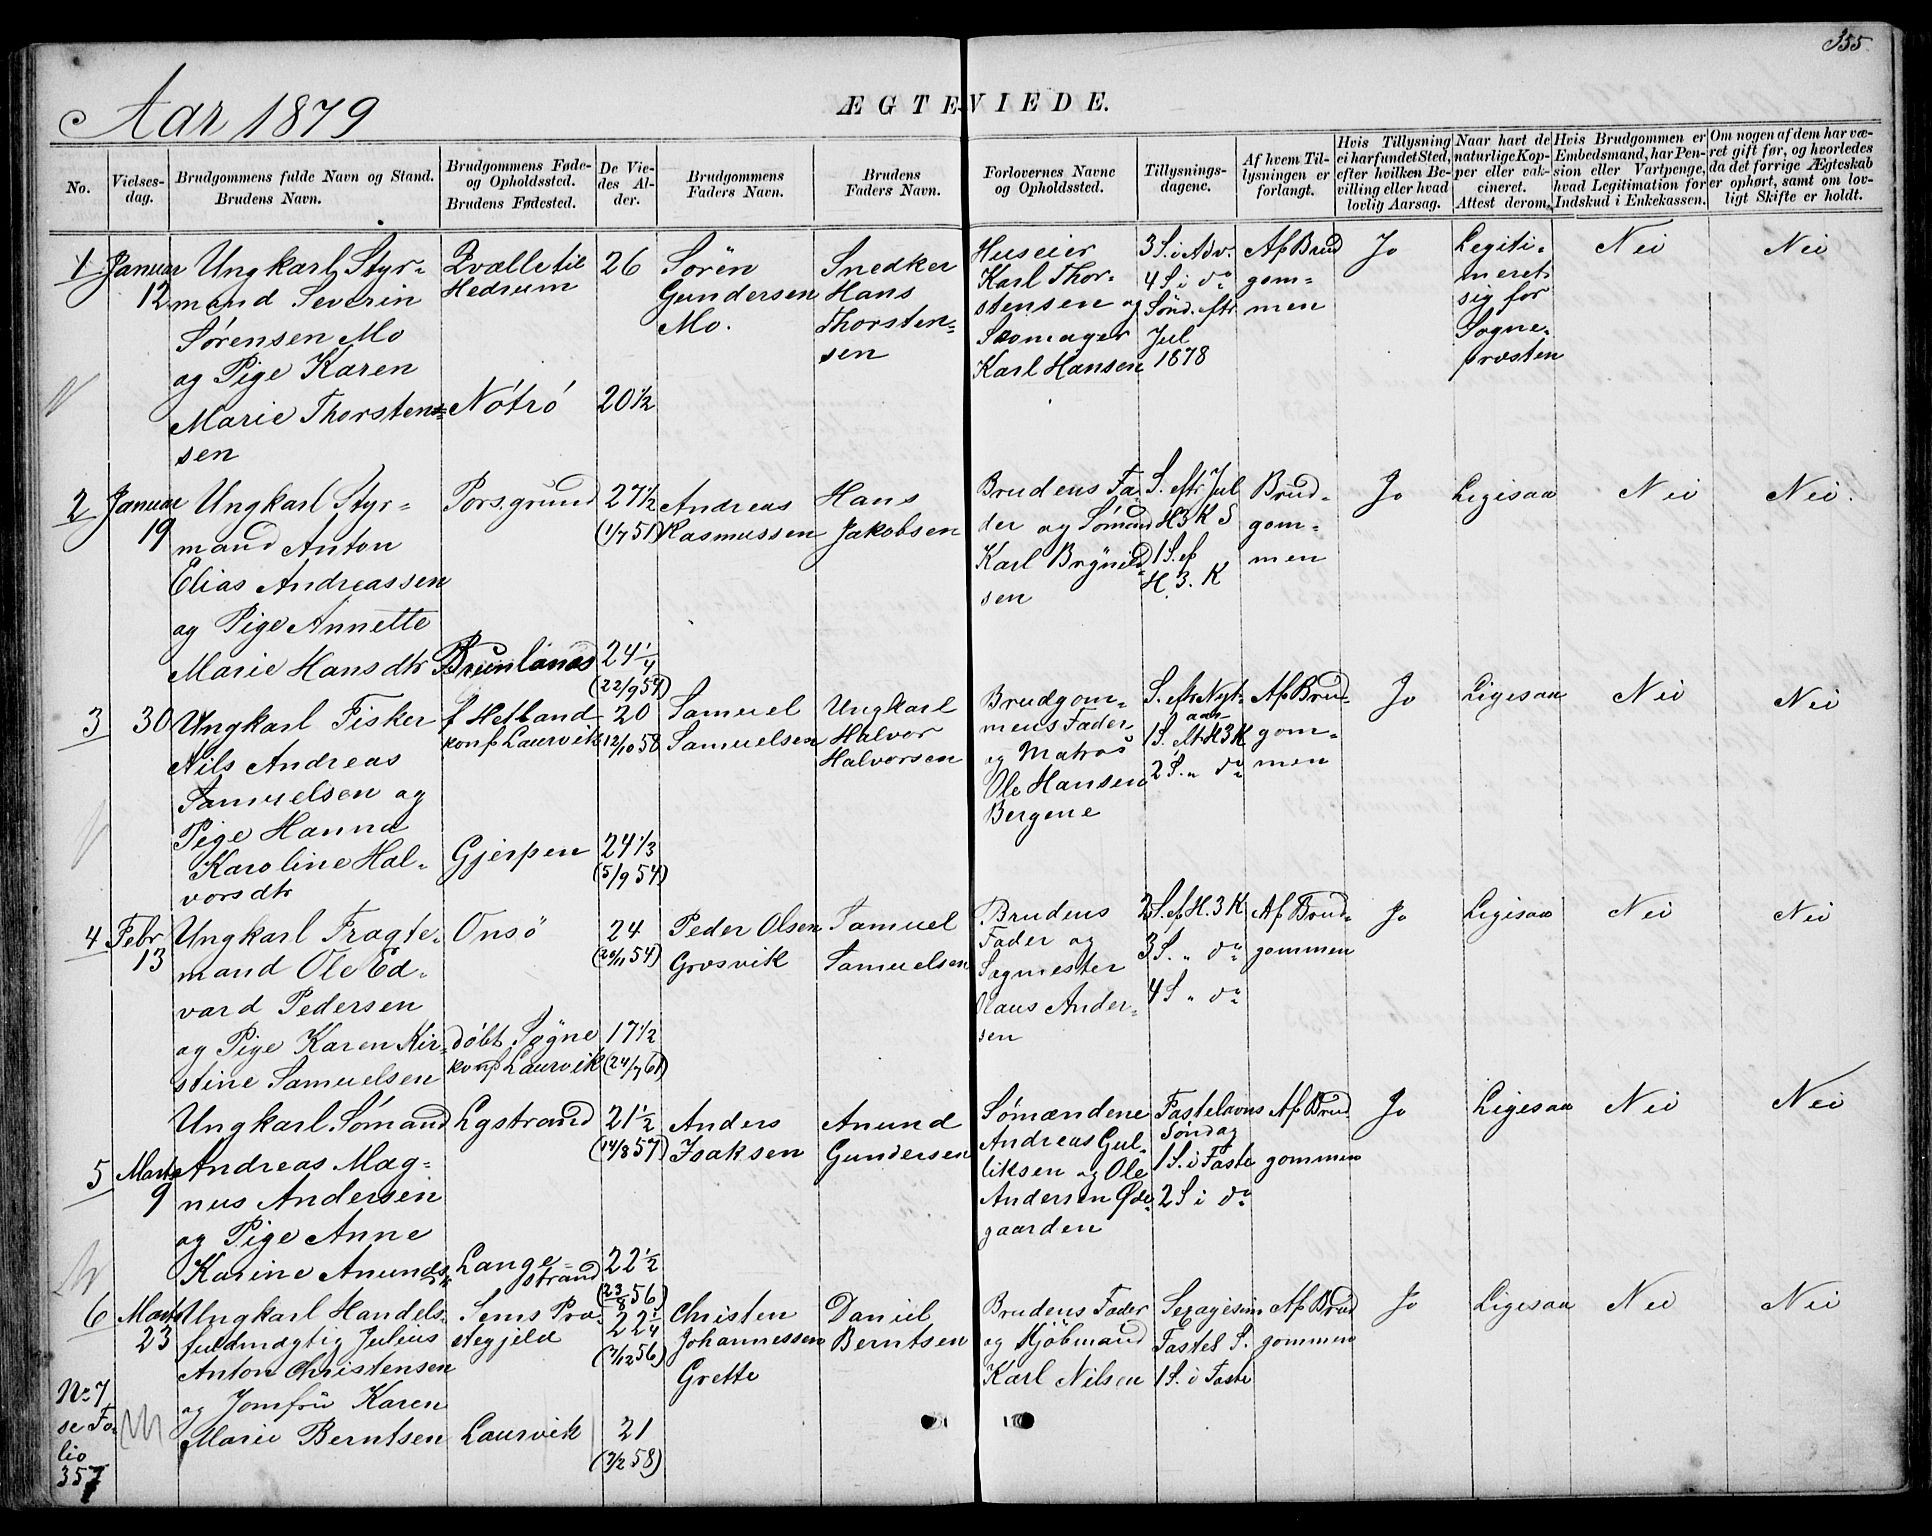 355.
Aar 1879
ÆGTEVIEDE.
No.
Vielses-
dag.
Brudgommens fulde Navn og Stand.
Brudens Navn.
Brudgommens Føde-
og Opholdssted.
Brudens Fødested.
De Vie-
des Al-
der.
Brudgommens
Faders Navn.
Brudens
Faders Navn.
Forlovernes Navne
og Opholdssted.
Tillysnings-
dagene.
Af hvem Til-
lysningen er
forlangt.
Hvis Tillysning
ei har fundet Sted,
efter hvilken Be-
villing eller hvad
lovlig Aarsag.
Naar havt de
naturlige Kop-
per eller vak-
cineret.
Attest derom.
Hvis Brudgommen er
Embedsmand, har Pen-
sion eller Vartpenge,
hvad Legitimation for
Indskud i Enkekassen.
Om nogen af dem har væ-
ret gift før, og hvorledes
da det forrige Ægteskab
er ophørt, samt om lov-
ligt Skifte er holdt.
1
Januar
12
Ungkarl Styr-
mand Severin
Sørensen Mo
og Pige Karen
Marie Thorsten-
sen
Qvælle til
Hedrum
Nötrö
26
20 1/2
Sören
Gundersen
Mo.
Snedker
Hans
Thorsten-
sen
Huseier
Karl Thor-
stensen og
Skomager
Karl Hansen
3 S. i Adv.
4 S i do
Sönd. eftr
Jul
1878
Af Brud
gom-
men
Jo
Legiti-
meret
sig for
Sogne-
præsten
Nei
Nei
2
Januar
19
Ungkarl Styr-
mand Anton
Elias Andreassen
og Pige Annette
Marie Hansdtr
Porsgrund
Brunlanæs
27 1/2
(1/7 51)
24 1/4
(22/9 54)
Andreas
Rasmussen
Hans
Jakobsen
Brudens Fa-
der og Sömand
Karl Brynild-
sen
S. eftr Jul
H3K S
1 S. ef
H. 3. K
Brud-
gom-
men
Jo
Ligesaa
Nei
Nei.
3
30
Ungkarl Fisker
Nils Andreas
Samuelsen og
Pige Hanna
Karoline Hal-
vorsdtr
f Hetland
konf Laurvik
Gjerpen
20
12/10 58
24 1/3
(5/9 54)
Samuel
Samuelsen
Ungkarl
Halvor
Halvorsen
Brudgom-
mens Fader
og Matros
Ole Hansen
Bergene
S. eftr Nyt-
aar
1 S. eftr H 3 K
2 S. " do
Af Brud-
gom-
men
Jo
Ligesaa
Nei
Nei
4
Febr
13
Ungkarl Fragte-
mand Ole Ed-
vard Pedersen
og Pige Karen Kir-
stine Samuelsen
Onsö
döbt Sögne
konf Laurvik
24
(20/11 54)
17 1/2
(24/7 61)
Peder Olsen
Grosvik
Samuel
Samuelsen
Brudens
Fader og
Sagmester
Olaus Ander-
sen
2 S. ef H. 3 K
3 S. " do
4 S " do
Af Brud-
gommen
Jo
Ligesaa
Nei
Nei
5
Marts
9
Ungkarl Sömand
Andreas Mag-
nus Andersen
og Pige Anne
Karine Anundsdtr
Lgstrand
Lange-
strand
21 1/2
(14/8 57)
22 1/2
(23/8 56)
Anders
Isaksen
Anund
Gundersen
Sömændene
Andreas Gul-
liksen og Ole
Andersen Öde-
gaarden
Fastelavns
Söndag
1 S. i Faste
2 S i do
Af Brud
gommen
Jo
Ligesaa
Nei
Nei
6
Marts
23
Ungkarl Handels-
fuldmægtig Julius
Anton Christensen
og Jomfru Karen
Marie Berntsen
Sems Præ-
stegjeld
Laurvik
22 1/4
(7/12 56)
21
(7/2 58)
Christen
Johannessen
Grette
Daniel
Berntsen
Brudens Fader
og Kjöbmand
Karl Nilsen
Sexagesim
Fastel S.
1 S. i Faste
Af Brud
gommen
Jo
Ligesaa
Nei
Nei
No 7
se Fo-
lio
357